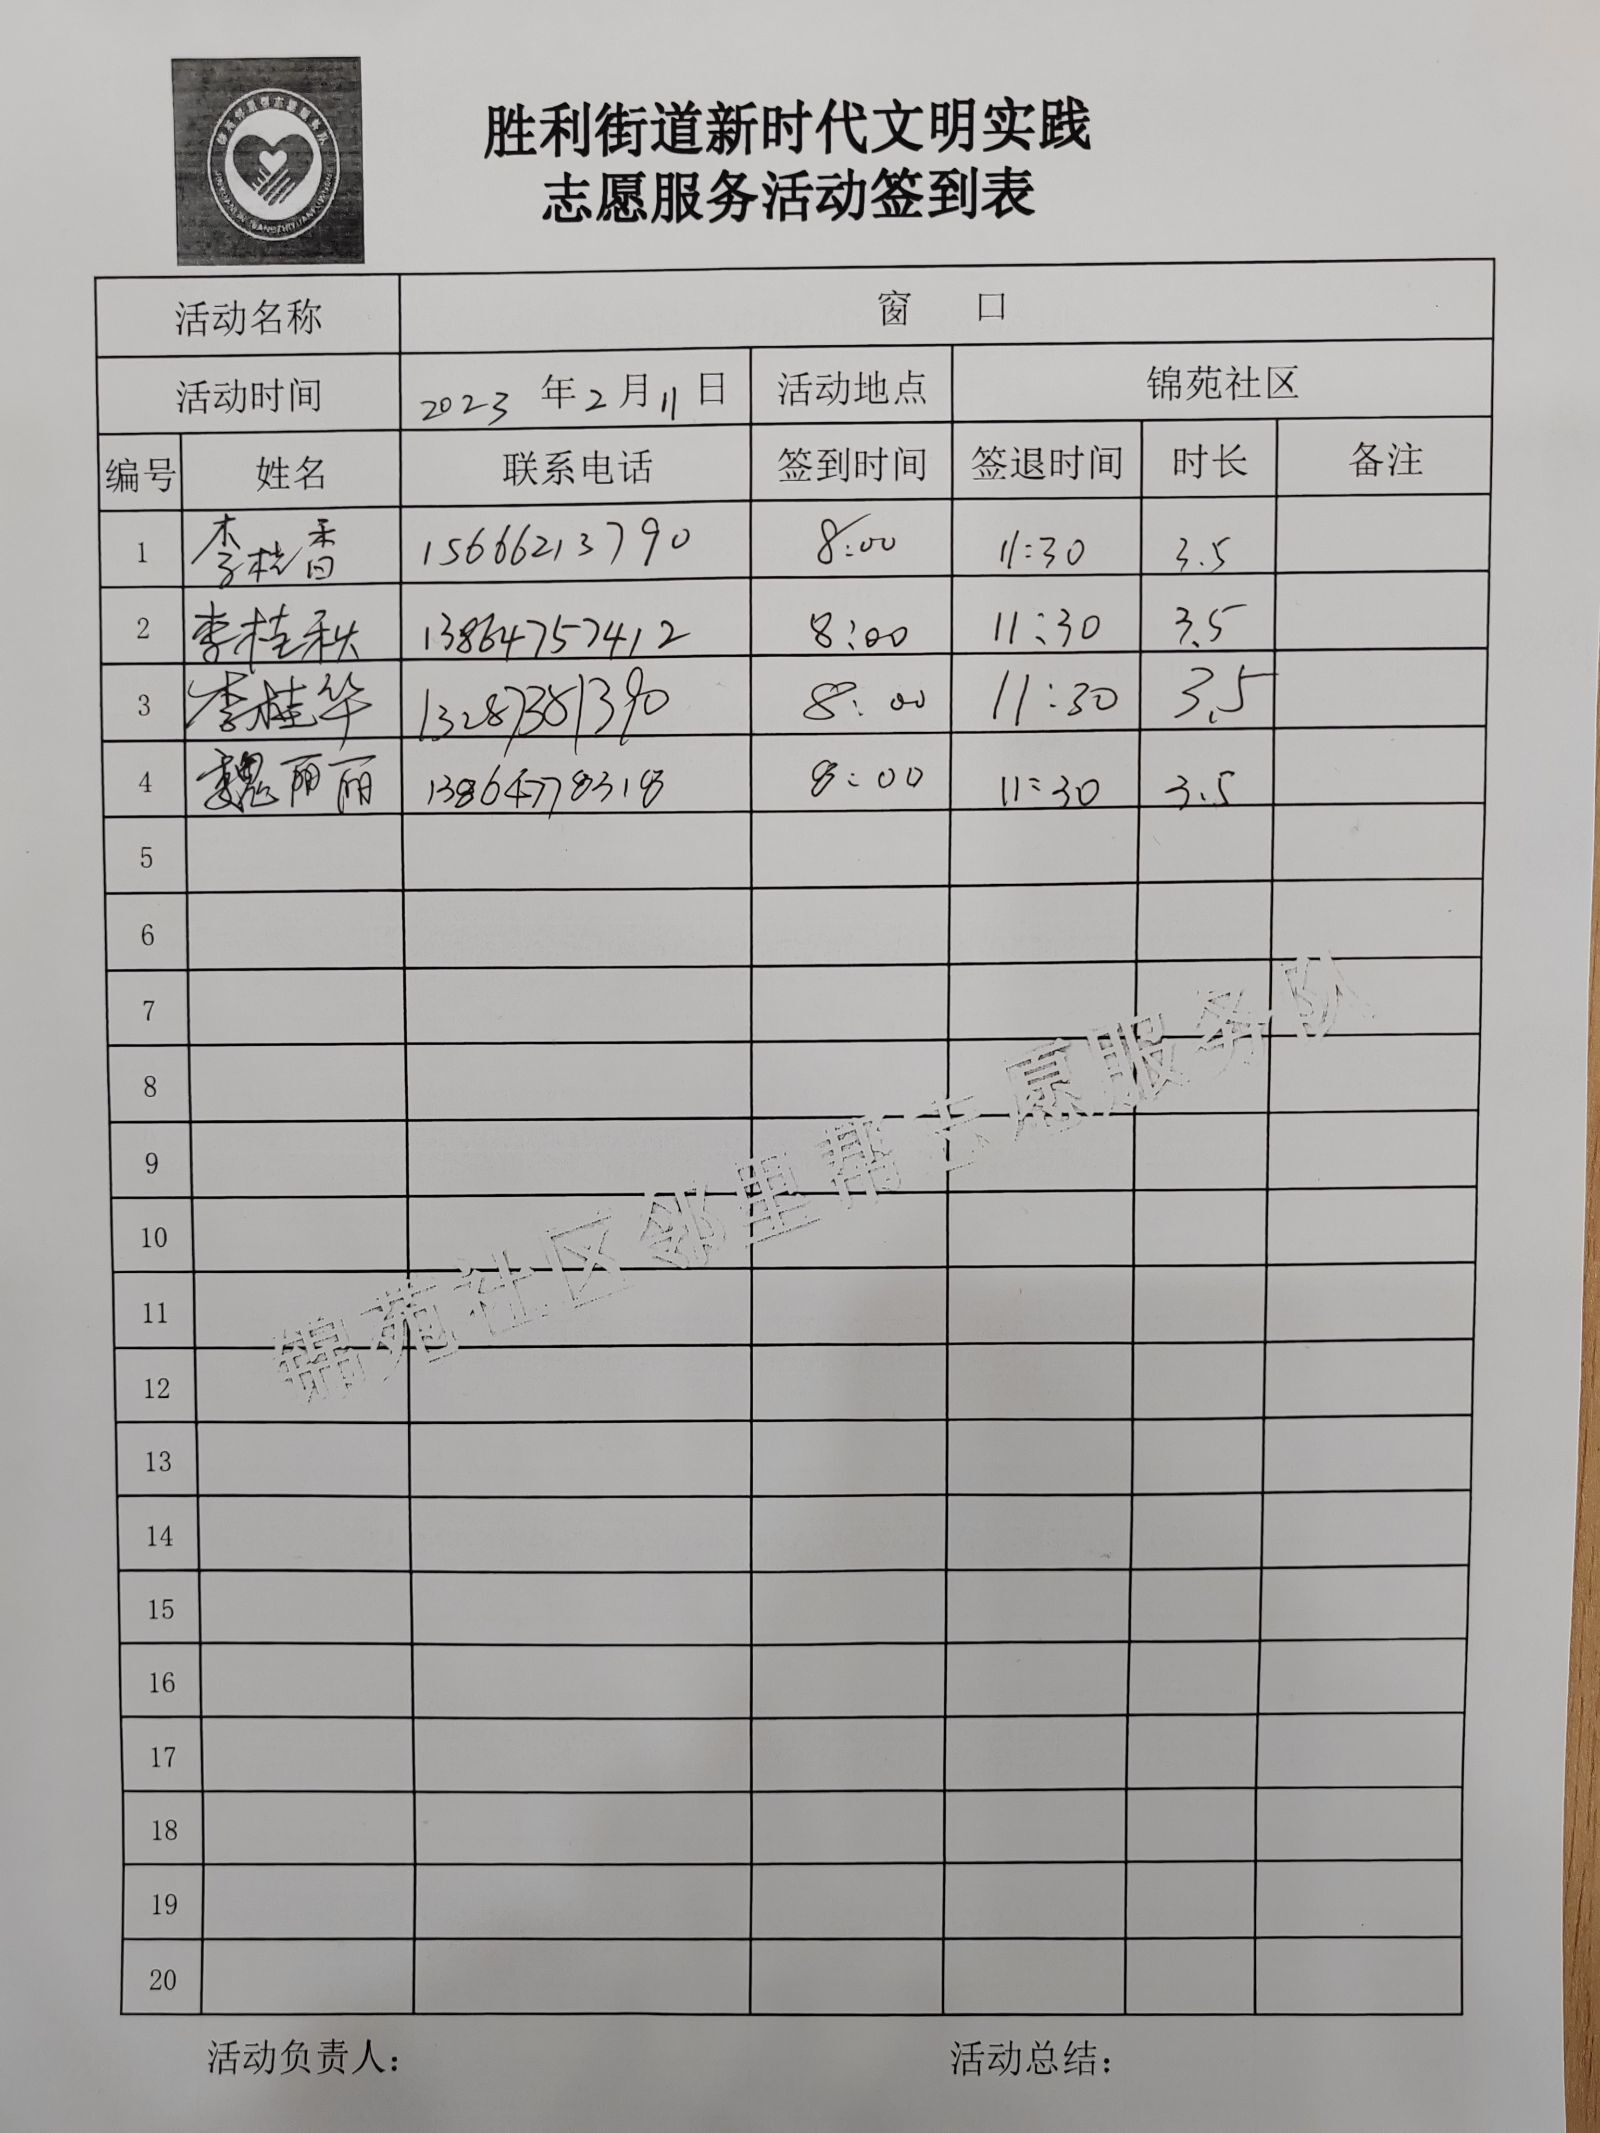 胜利街道新时代文明实践
志愿服务活动签到表
活动名称 窗 口
活动时间 2023 年 2 月 11 日 活动地点 锦苑社区
编号 姓名 联系电话 签到时间 签退时间 时长 备注
1 李桂香 15666213790 8:00 11:30 3.5
2 李桂秋 13864757412 8:00 11:30 3.5
3 李桂华 13287381390 8:00 11:30 3.5
4 魏丽丽 13864778318 8:00 11:30 3.5
5
6
7
8
9
10
11
12
13
14
15
16
17
18
19
20
锦苑社区邻里帮志愿服务队
活动负责人: 活动总结: